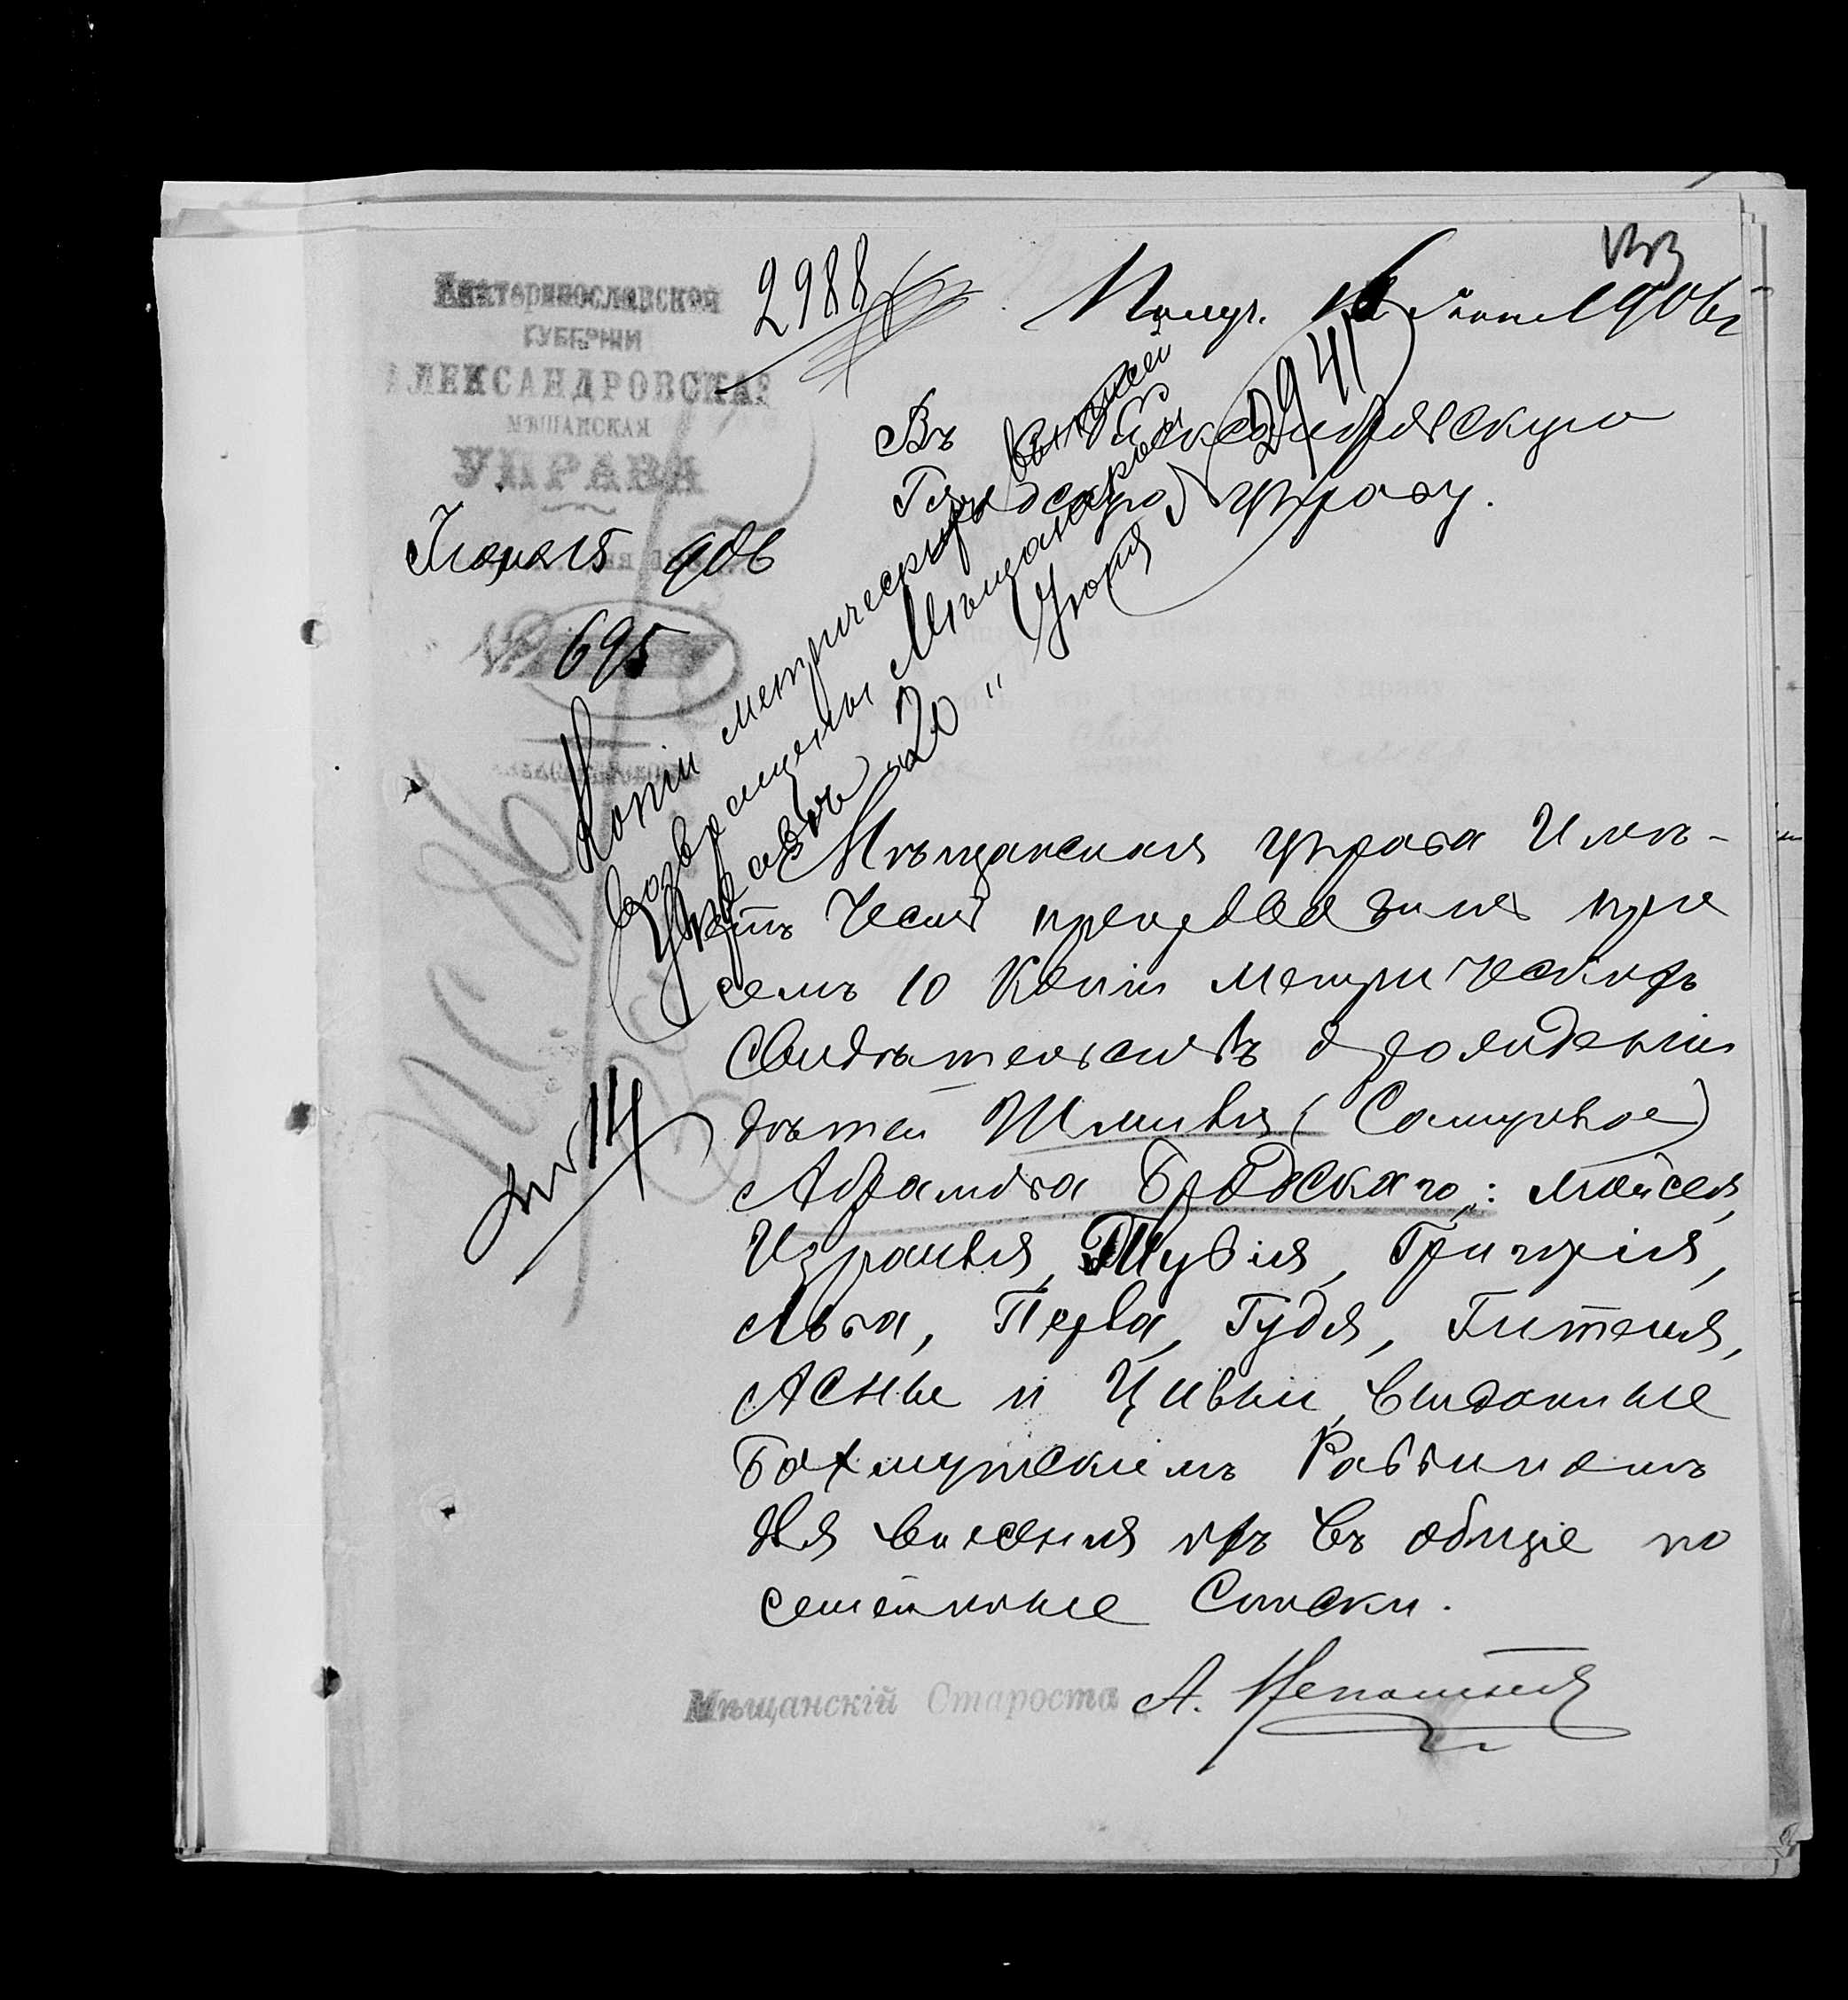 Екатеринославской
ГУБЕРНІИ
АЛЕКСАНДРОВСКАЯ
МѢЩАНСКАЯ
УПРАВА
2988
Получ. 16 Іюня 1906 г.
2941
Въ Александровскую
Городскую Управу.
Іюня 15 906
№ 695
Копіи метрическихъ выписей
возвращены Мѣщанской
Управѣ "20" Іюня
П.С. 86
№ 14
Мѣщанская управа Имѣ-
етъ честь препроводить при
семъ 10 Копій Метрическихъ
Свидѣтельствъ о рожденіи
дѣтей Шмиля (Самуила)
Абрамова Бродскаго: Мойсея,
Израиля, Тувія, Григорія,
Льва, Перла, Гудя, Гителя,
Асны и Цивьи, выданные
Бахмутскимъ Раввиномъ
для внесенія ихъ въ общіе по
семейные Списки.
Мѣщанскій Староста А.